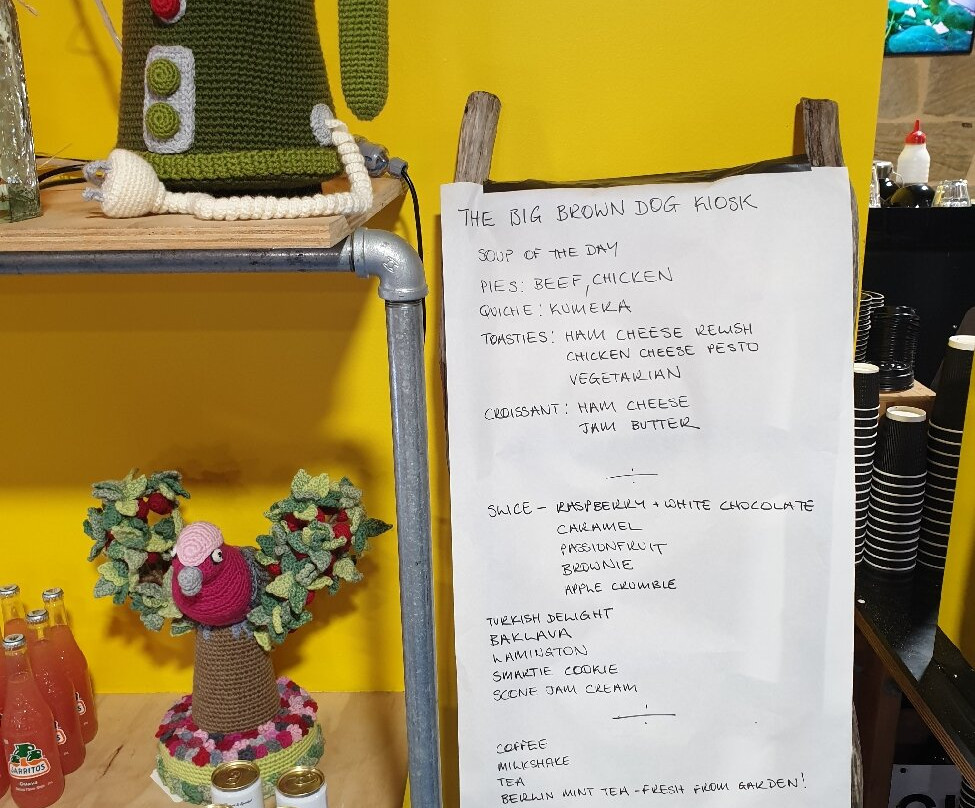 THE BIG BROWN DOG KIOSK
SOUP OF THE DAY
PIES: BEEF, CHICKEN
QUICHE: KUMERA
TOASTIES: HAM CHEESE RELISH
CHICKEN CHEESE PESTO
VEGETARIAN
CROISSANT: HAM CHEESE
JAM BUTTER
SLICE - RASPBERRY + WHITE CHOCOLATE
CARAMEL
PASSIONFRUIT
BROWNIE
APPLE CRUMBLE
TURKISH DELIGHT
BAKLAVA
LAMINGTON
SMARTIE COOKIE
SCONE JAM CREAM
COFFEE
MILKSHAKE
TEA
BERLIN MINT TEA - FRESH FROM GARDEN!
JARRITOS